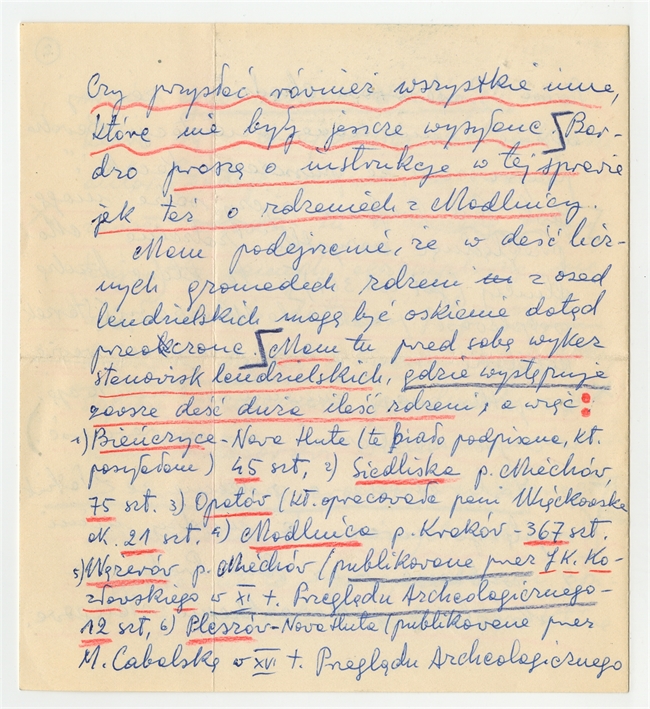 Czy przysłać również wszystkie inne,
które nie były jeszcze wysyłane. Bar-
dzo proszę o instrukcje w tej sprawie
jak też o rdzeniach z Modlnicy.
Mam podejrzenie, że w dość licz-
nych gromadach rdzeni z osad
lendzielskich mogą być oskienie dotąd
przeoczone. Mam tu przed sobą wykaz
stanowisk lendzielskich, gdzie występuje
zawsze dość duża ilość rdzeni, a więc:
1) Bieńczyce - Nowa Huta (te biało podpisane, kt.
posyłałam) 45 szt, 2) Siedliska p. Miechów,
75 szt. 3) Opatów (kt. opracowała pani Więckowska
ok. 21 szt. 4) Modlnica p. Kraków - 367 szt.
5) Wężerów p. Miechów (publikowane przez J. K. Ko-
złowskiego w XI t. Przeglądu Archeologicznego -
12 szt, 6) Pleszów - Nowa Huta (publikowane przez
M. Cabalską w XVI t. Przeglądu Archeologicznego